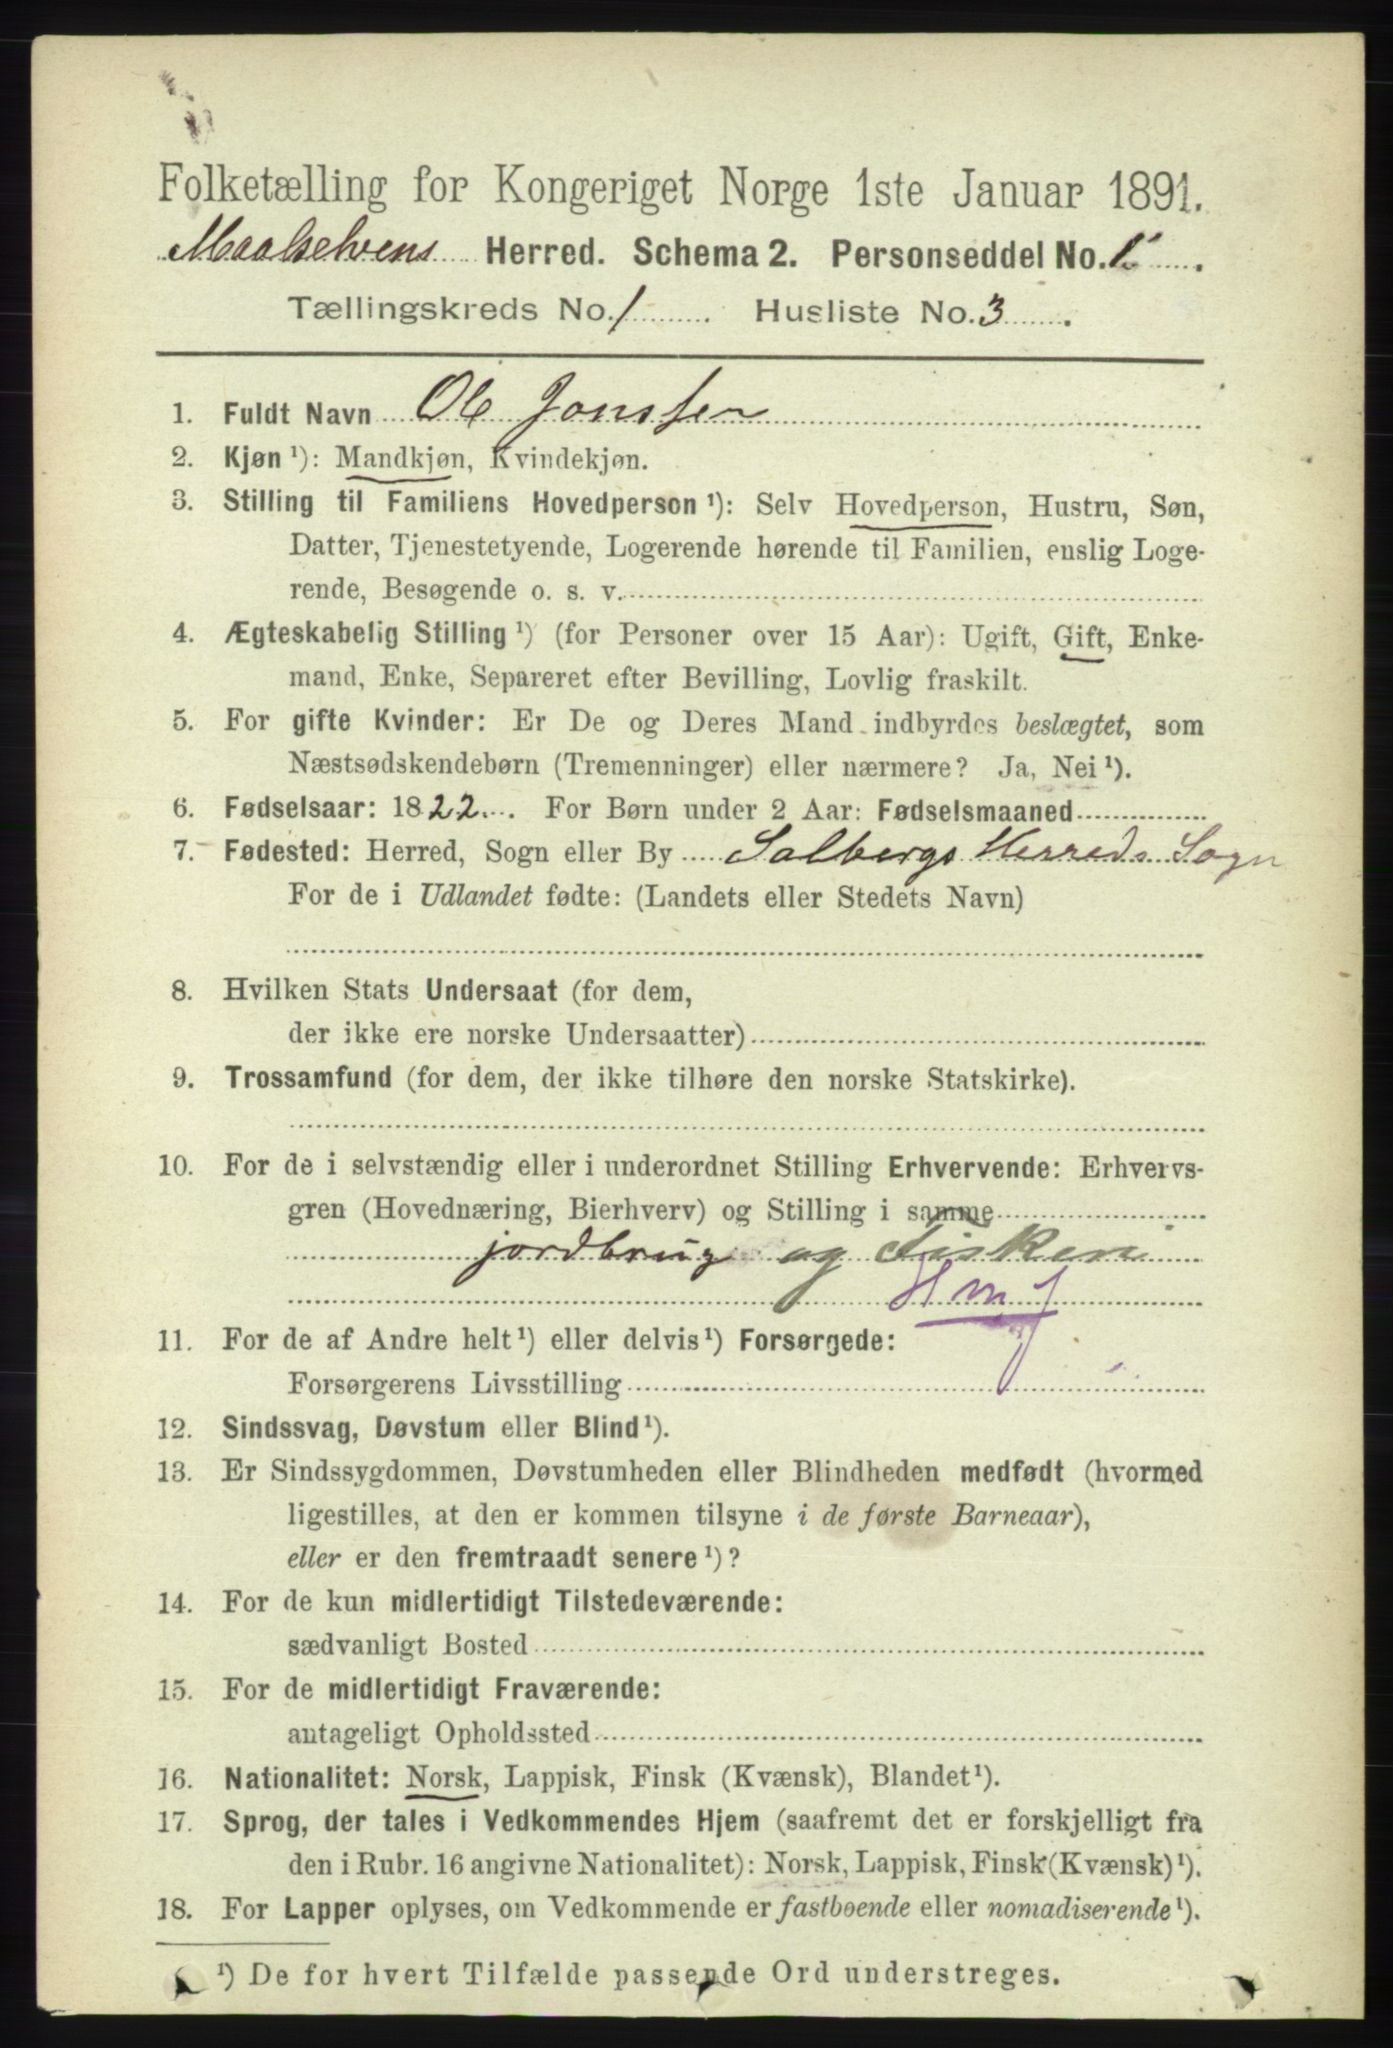 Folketælling for Kongeriget Norge 1ste Januar 1891.
Maalselvens Herred. Schema 2. Personseddel No. 1.
Tællingskreds No. 1. Husliste No. 3.
1. Fuldt Navn Ole Jonssen
2. Kjøn ¹): Mandkjøn, Kvindekjøn.
3. Stilling til Familiens Hovedperson ¹): Selv Hovedperson, Hustru, Søn,
Datter, Tjenestetyende, Logerende hørende til Familien, enslig Loge-
rende, Besøgende o. s. v.
4. Ægteskabelig Stilling ¹) (for Personer over 15 Aar): Ugift, Gift, Enke-
mand, Enke, Separeret efter Bevilling, Lovlig fraskilt.
5. For gifte Kvinder: Er De og Deres Mand indbyrdes beslægtet, som
Næstsødskendebørn (Tremenninger) eller nærmere? Ja, Nei ¹).
6. Fødselsaar: 1822. For Børn under 2 Aar: Fødselsmaaned
7. Fødested: Herred, Sogn eller By Salbergs Herreds Sogn
For de i Udlandet fødte: (Landets eller Stedets Navn)
8. Hvilken Stats Undersaat (for dem,
der ikke ere norske Undersaatter)
9. Trossamfund (for dem, der ikke tilhøre den norske Statskirke).
10. For de i selvstændig eller i underordnet Stilling Erhvervende: Erhvervs-
gren (Hovednæring, Bierhverv) og Stilling i samme
jordbrug og Fiskeri
11. For de af Andre helt ¹) eller delvis ¹) Forsørgede:
Forsørgerens Livsstilling
12. Sindssvag, Døvstum eller Blind ¹).
13. Er Sindssygdommen, Døvstumheden eller Blindheden medfødt (hvormed
ligestilles, at den er kommen tilsyne i de første Barneaar),
eller er den fremtraadt senere ¹)?
14. For de kun midlertidigt Tilstedeværende:
sædvanligt Bosted
15. For de midlertidigt Fraværende:
antageligt Opholdssted
16. Nationalitet: Norsk, Lappisk, Finsk (Kvænsk), Blandet ¹).
17. Sprog, der tales i Vedkommendes Hjem (saafremt det er forskjelligt fra
den i Rubr. 16 angivne Nationalitet): Norsk, Lappisk, Finsk (Kvænsk) ¹).
18. For Lapper oplyses, om Vedkommende er fastboende eller nomadiserende ¹).
¹) De for hvert Tilfælde passende Ord understreges.